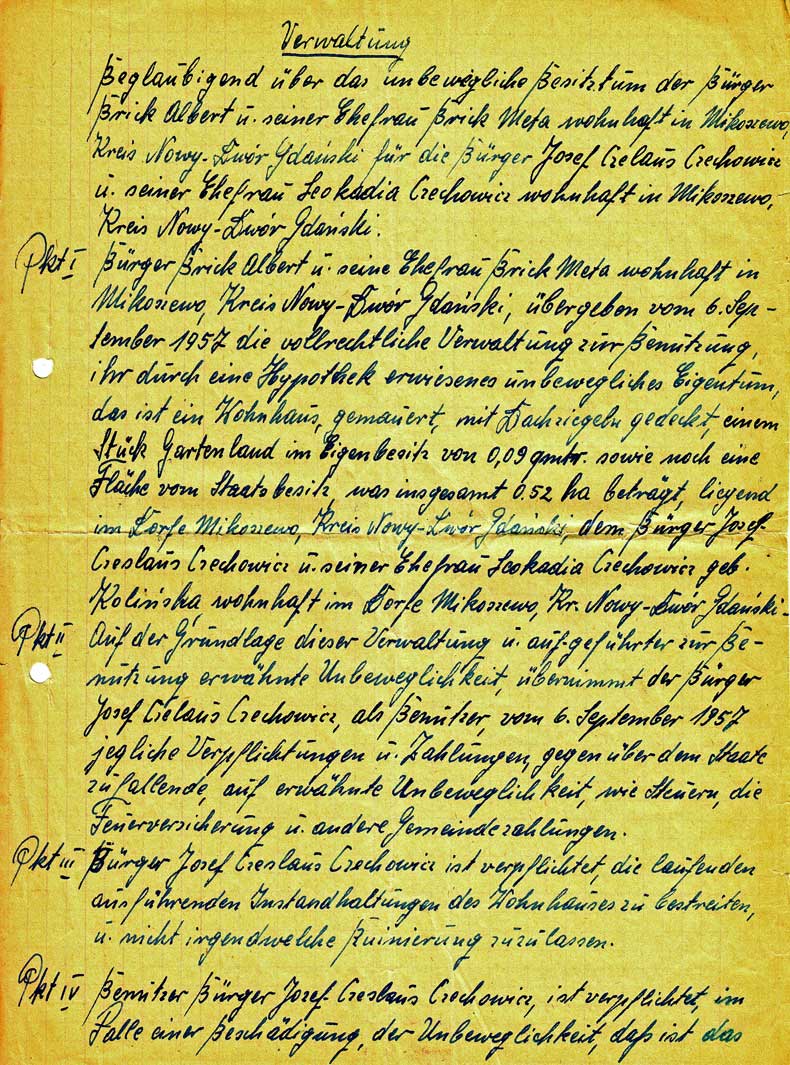 Verwaltung
Beglaubigend über das unbewegliche Besitztum der Bürger
Brick Albert u. seiner Ehefrau Brick Meta wohnhaft in Mikoszewo,
Kreis Nowy-Dwór Gdański für die Bürger Josef Czelaus Czechowicz
u. seiner Ehefrau Leokadia Czechowicz wohnhaft in Mikoszewo,
Kreis Nowy-Dwór Gdański.
Pkt I Bürger Brick Albert u. seine Ehefrau Brick Meta wohnhaft in
Mikoszewo, Kreis Nowy-Dwór Gdański, übergeben vom 6. Sep-
tember 1957 die vollrechtliche Verwaltung zur Benutzung,
ihr durch eine Hypothek erwiesenes unbewegliches Eigentum,
das ist ein Wohnhaus, gemauert, mit Dachziegeln gedeckt, einem
Stück Gartenland im Eigenbesitz von 0,09 qmtr. sowie noch eine
Fläche vom Staatsbesitz, was insgesamt 0.52 ha beträgt, liegend
im Dorfe Mikoszewo, Kreis Nowy-Dwór Gdański, dem Bürger Josef-
Czeslaus Czechowicz u. seiner Ehefrau Leokadia Czechowicz geb.
Kolińska, wohnhaft im Dorfe Mikoszewo, Kr. Nowy-Dwór Gdański-
Pkt II Auf der Grundlage dieser Verwaltung u. auf-geführter zur Be-
nutzung erwähnte Unbeweglichkeit, übernimmt der Bürger
Josef Czelaus Czechowicz, als Benutzer, vom 6. September 1957
jegliche Verpflichtungen u. Zahlungen, gegenüber dem Staate
zufallende, auf erwähnte Unbeweglichkeit, wie Steuern, die
Feuerversicherung u. andere Gemeindezahlungen.
Pkt III Bürger Josef Czeslaus Czechowicz ist verpflichtet, die laufenden
ausführenden Instandhaltungen des Wohnhauses zu bestreiten,
u. nicht irgendwelche Ruinierung zuzulassen.
Pkt IV Benutzer Bürger Jozef Czeslaus Czechowicz, ist verpflichtet, im
Falle einer Beschädigung, der Unbeweglichkeit, daß ist das